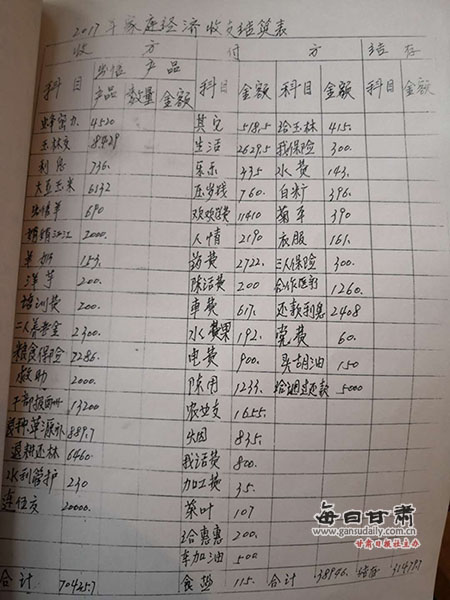 2017年家庭经济收支结算表
收 方 付 方 结 存
出售 产品
科目 产品 数量 金额 科目 金额 科目 金额 科目 金额
蜂蜜 4520 其它 518.5 给玉林 415.
玉林交 8429 生活 2629.5 我保险 300.
利息 736. 435 水费 143.
大豆玉米 6132 压岁钱 760. 396.
出售羊 690 11410 菊平 390
2000. 人情 2190 衣服 161.
153. 药费 2722. 三人保险 300.
洋芋 200. 陈话费 200 合作医疗 1260.
培训费 200. 车费 617. 还款利息 2408
二人养老金 2300. 水果 192. 党费 60.
粮食保险 2286. 电费 900. 买胡油 150
救助 2000. 陈用 1233. 给湘还款 5000
干部报酬 13200 农业支 1655.
889.7 烟 835.
退耕还林 6460 我话费 800.
水利管护 230 加工费 35.
连任交 20000. 茶叶 107
给惠惠 200.
车加油 500
合计 70425.7 食盐 115. 合计 38946. 结存 31479.7
每日甘肃
www.gansudaily.com.cn
甘肃日报社主办